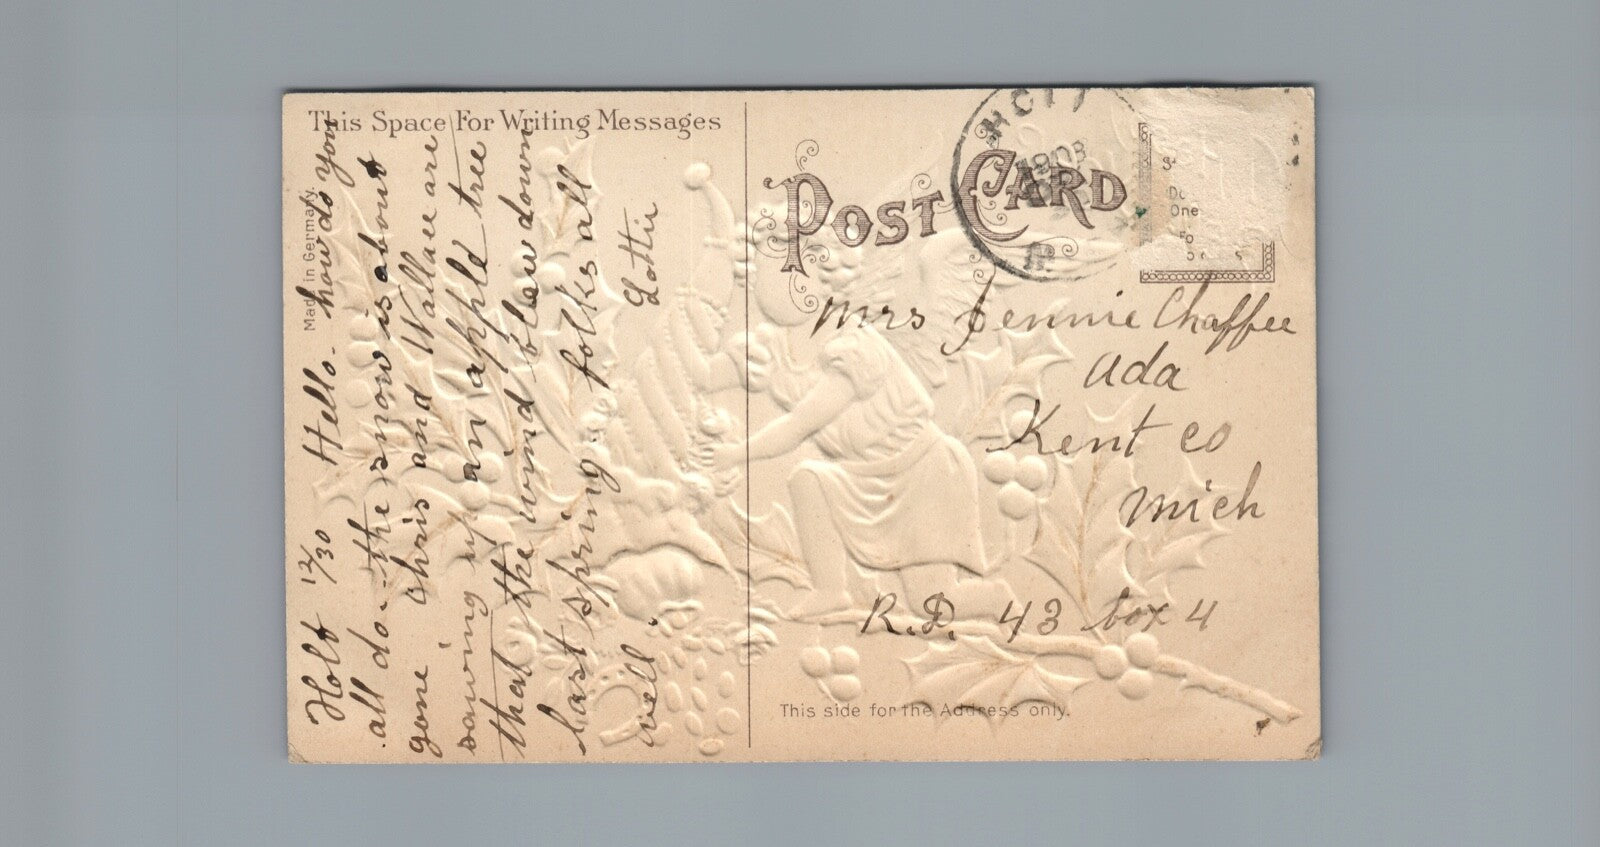 This Space For Writing Messages
Made in Germany.
Holt 12/30 Hello. how do you
all do. the snow is about
gone chris and Wallace are
sawing up an apple tree
that the wind blew down
last spring. folks all
well Lottie
POST CARD
HOLT
1908
Do
One
Fo
Mrs Jennie Chaffee
Ada
Kent co
Mich
R.D. 43 box 4
This side for the Address only.